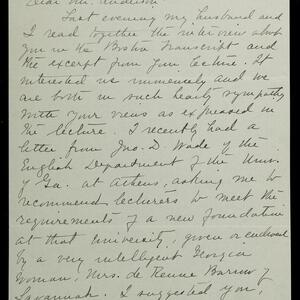 Dear Mr. Anderson
Last evening my husband and
I read together the interview about
you in the Boston Transcript and
the excerpt from your lecture. It
interested us immensely and we
are both in such hearty sympathy
with your views as expressed in
the lecture. I recently had a
letter from Jno. D. Wade of the
English Department of the Univ.
of Ga. at Athens, asking me to
recommend lecturers to meet the
requirements of a new foundation
at that University, given or endowed
by a very intelligent Georgia
woman, Mrs. de Renne Barrow of
Savannah. I suggested you,